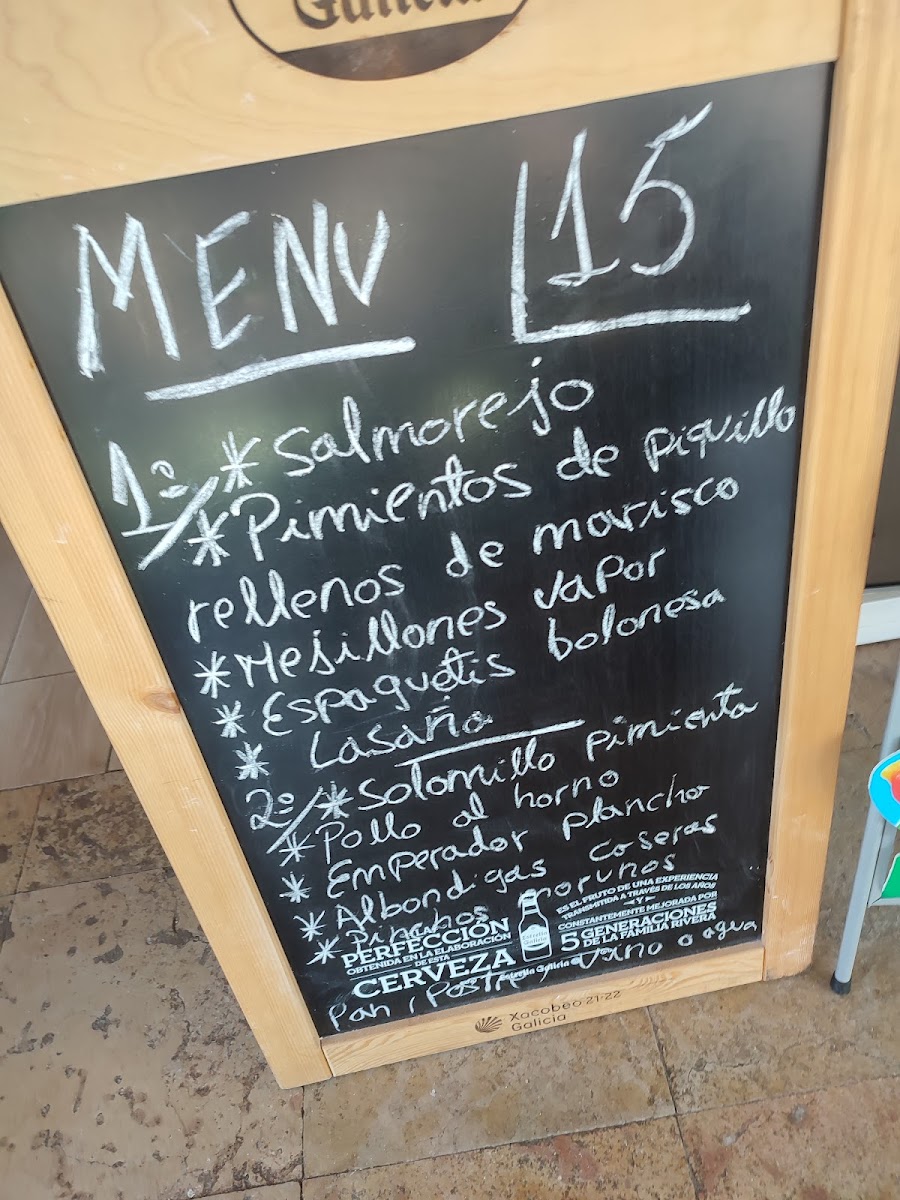 Galicia
MENU 15
1º/ * Salmorejo
* Pimientos de piquillo
rellenos de marisco
* Mesillones vapor
* Espaguetis bolonesa
* Lasaña
2º/ * Solomillo pimienta
* Pollo al horno
* Emperador plancha
* Albondigas caseras
* Pinchos morunos
PERFECCIÓN
OBTENIDA EN LA ELABORACIÓN
DE ESTA
CERVEZA
ES EL FRUTO DE UNA EXPERIENCIA
TRANSMITIDA A TRAVÉS DE LOS AÑOS
Y
CONSTANTEMENTE MEJORADA POR
5 GENERACIONES
DE LA FAMILIA RIVERA
Estrella Galicia
Pan, Postre, Vino o agua
Xacobeo 21·22
Galicia